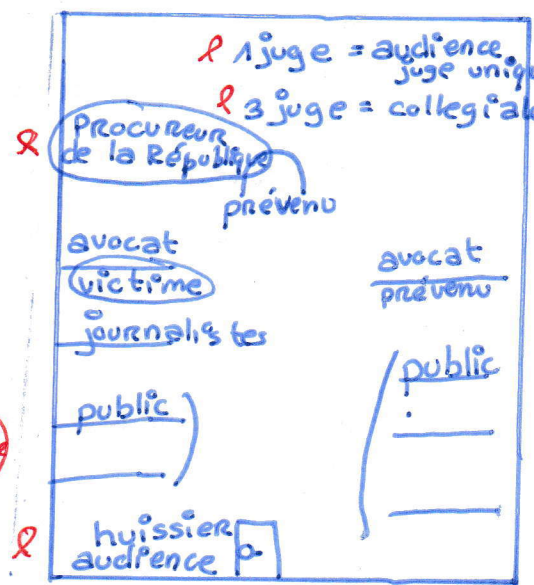 1 juge = audience
juge unique
3 juge = collegiale
Procureur
de la République
prévenu
avocat
victime
journalistes
public
avocat
prévenu
public
huissier
audience